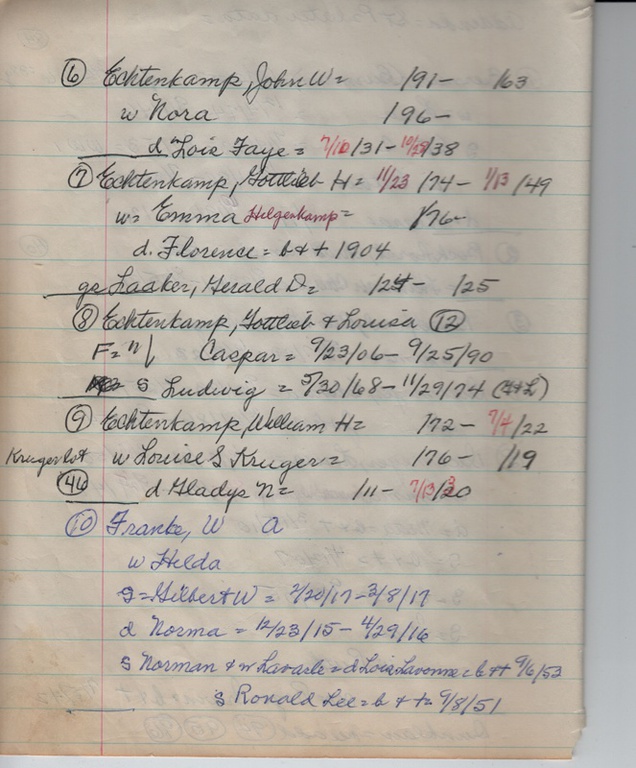 ⑥ Echtenkamp, John W= /91- /63
w Nora /96-
d Lois Faye = 7/10/31- 10/28/38
⑦ Echtenkamp, Gottlieb H= 11/23/74- 1/13/49
w= Emma Helgenkamp= /76-
d. Florence = b++ 1904
gs Laaker, Gerald D= /24- /25
⑧ Echtenkamp, Gottlieb & Louisa ⑫
F= Caspar= 9/23/06- 9/25/90
s Ludwig = 5/30/68- 11/29/74 (G+L)
⑨ Echtenkamp, William H= /72- 7/4/22
Kruger lot w Louise S Kruger= /76- /19
(46) d Gladys N= /11- 7/13/20
⑩ Franke, W A
w Hilda
s=Gilbert W= 2/20/17-3/8/17
d Norma = 12/23/15- 4/29/16
s Norman & w Lavarle=d Lois Lavonne=b++ 9/6/53
s Ronald Lee=b++= 9/8/51